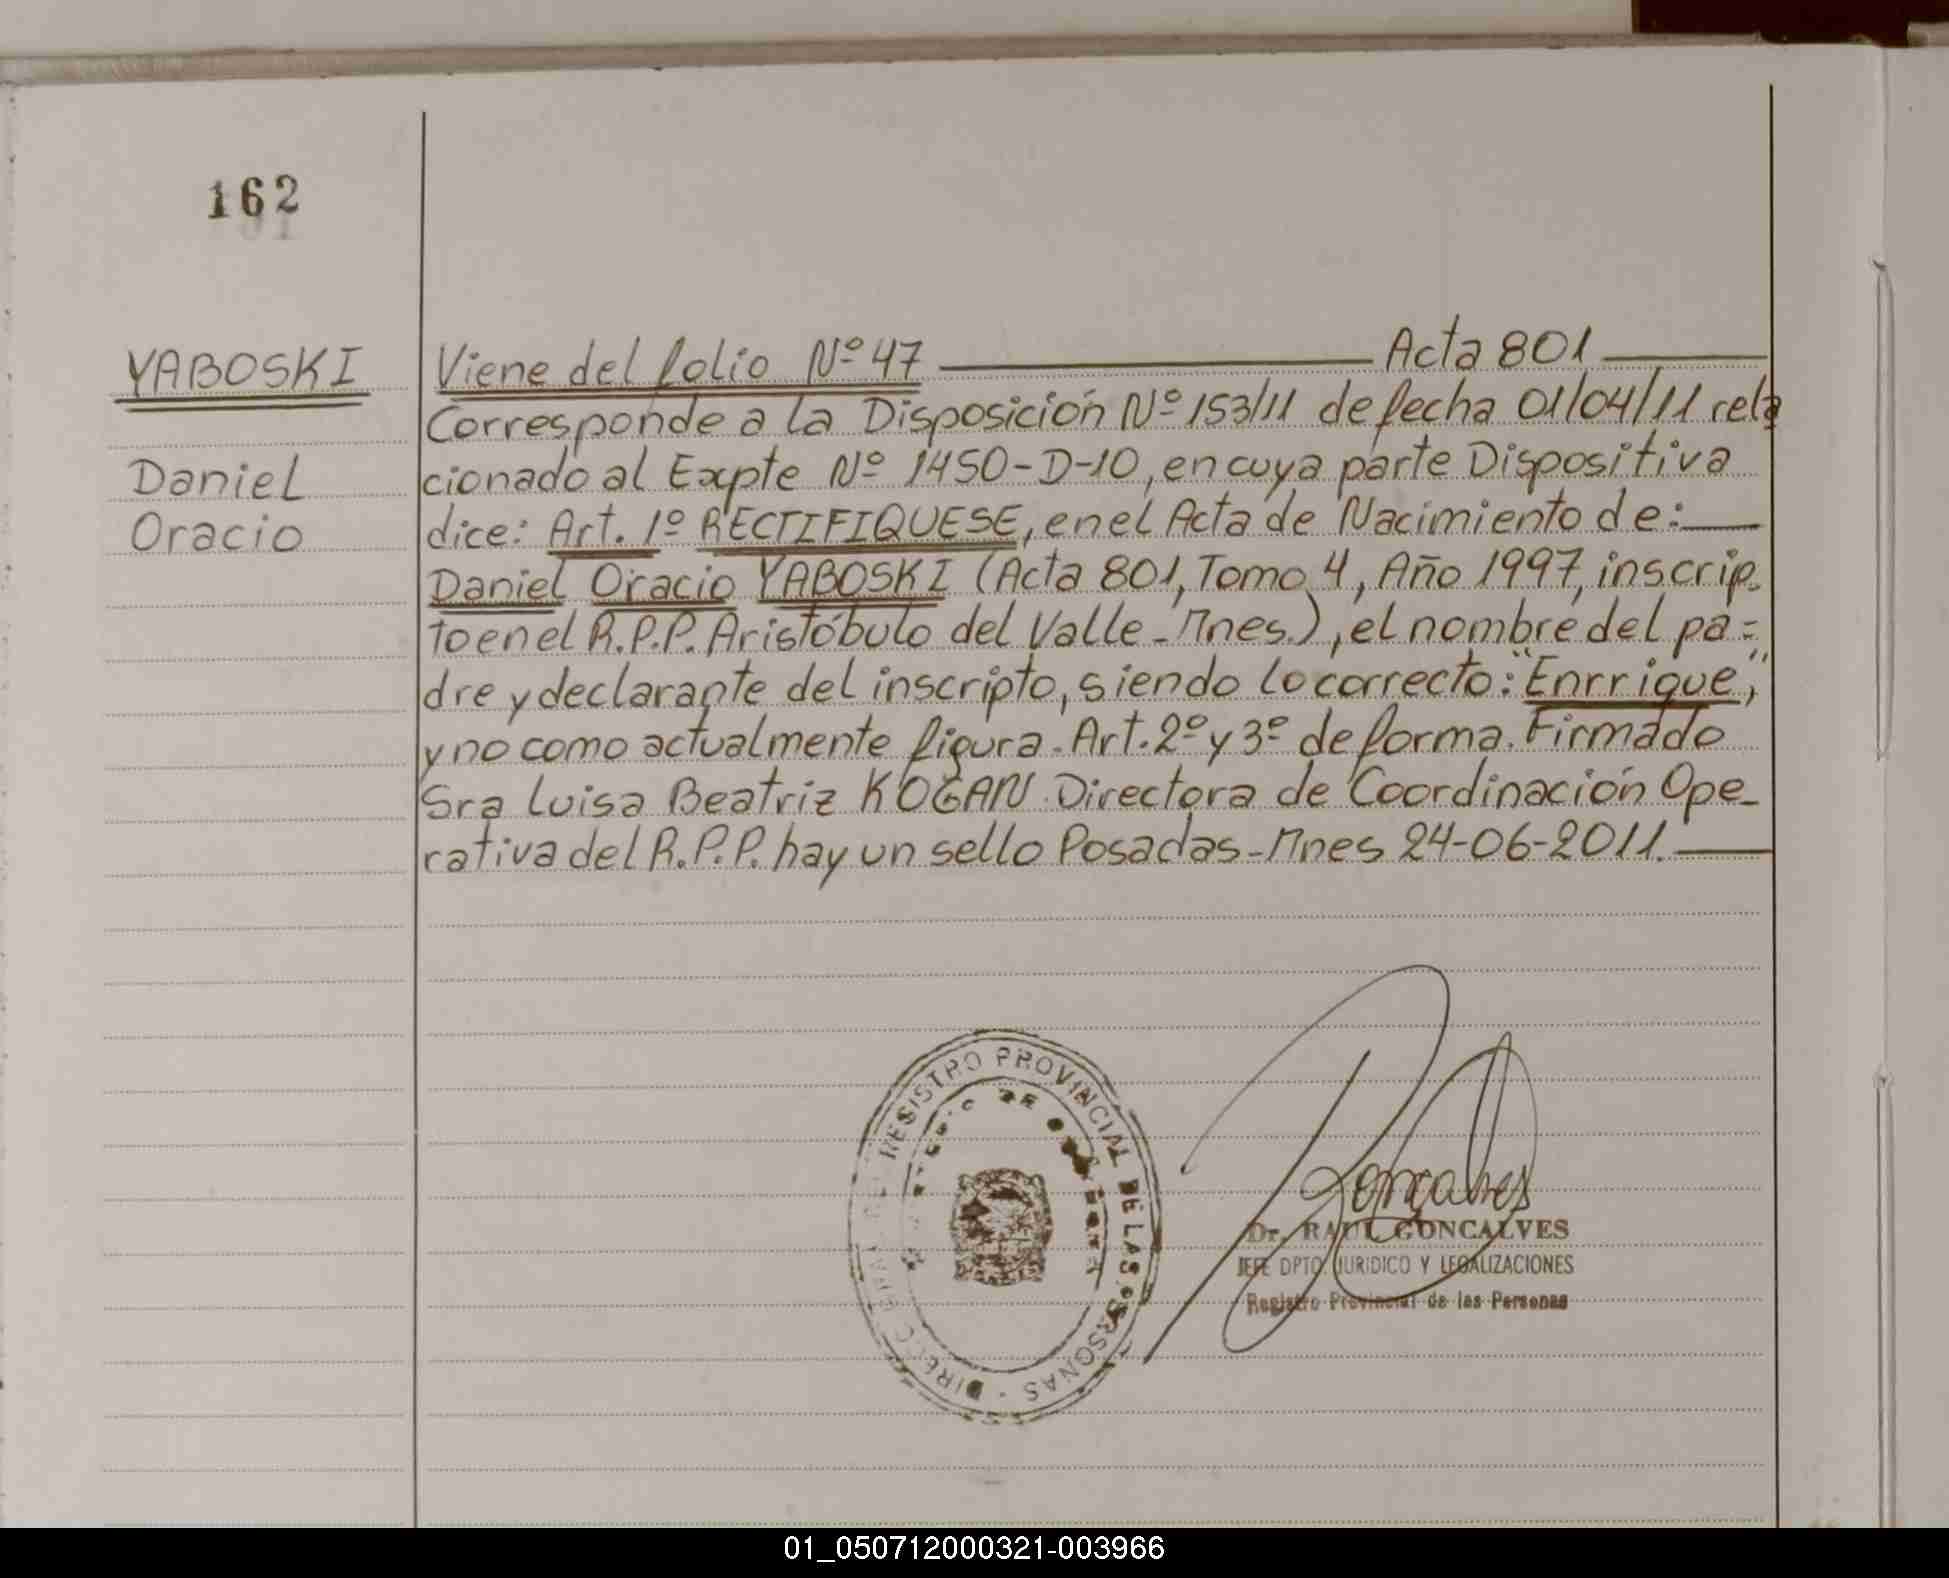 162
YABOSKI
Daniel
Oracio
Viene del folio Nº 47 Acta 801
Corresponde a la Disposición Nº 153/11 de fecha 01/04/11 rela
cionado al Expte Nº 1450-D-10, en cuya parte Dispositiva
dice: Art. 1º RECTIFIQUESE, en el Acta de Nacimiento de:
Daniel Oracio YABOSKI (Acta 801, Tomo 4, Año 1997, inscrip.
to en el R.P.P. Aristóbulo del Valle - Mnes.), el nombre del pa=
dre y declarante del inscripto, siendo lo correcto: "Enrrique",
y no como actualmente figura. Art. 2º y 3º de forma. Firmado
Sra Luisa Beatriz KOGAN. Directora de Coordinación Ope-
rativa del R.P.P. hay un sello Posadas-Mnes 24-06-2011.
REGISTRO PROVINCIAL DE LAS PERSONAS
Gonçalves
Dr. RAUL GONCALVES
JEFE DPTO. JURIDICO Y LEGALIZACIONES
Registro Provincial de las Personas
01_050712000321-003966